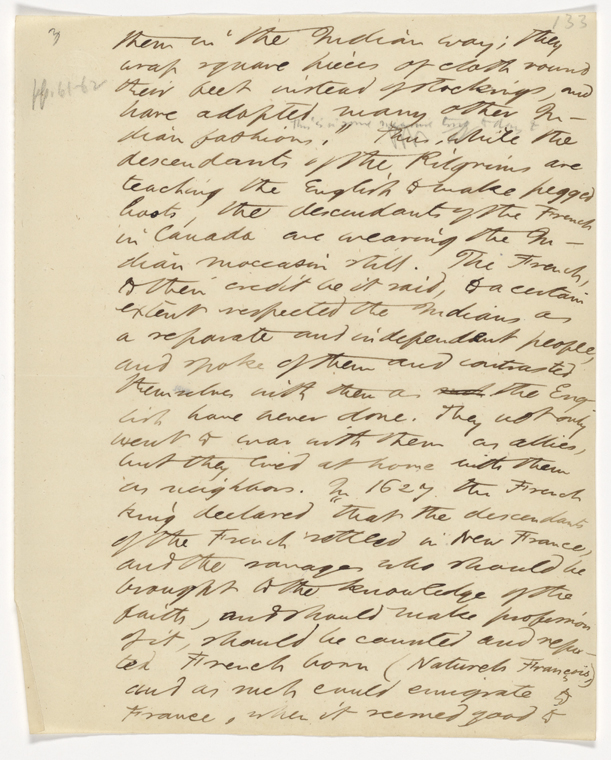 133
them in the Indian way; they
wrap square pieces of cloth round
pp. 61-62
their feet instead of stockings, and
have adopted many other In-
This is in some
dian fashions." Thus, while the
descendants of the Pilgrims are
teaching the English to make pegged
boots, the descendants of the French
in Canada are wearing the In-
dian moccasin still. The French,
to their credit be it said, to a certain
extent respected the Indians as
a separate and independent people,
and spoke of them and contrasted
themselves with them as such the Eng-
lish have never done. They not only
went to war with them as allies,
but they lived at home with them
as neighbors. In 1627 the French
king declared "that the descendants
of the French settled in New France,
and the savages who should be
brought to the knowledge of the
faith, and should make profession
of it, should be counted and repu-
ted French born (Naturels François)
and as such could emigrate to
France, when it seemed good to